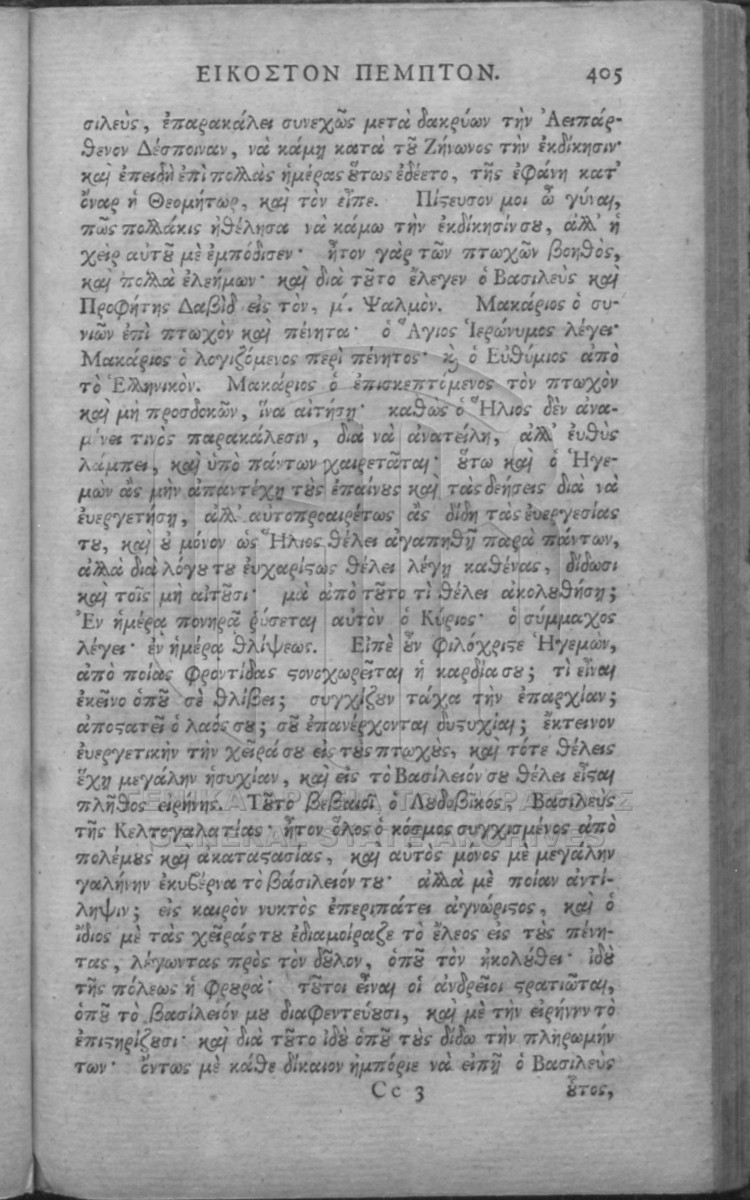 ΕΙΚΟΣΤΟΝ ΠΕΜΠΤΟΝ. 405
σιλεὺς, ἐπαρακάλει συνεχῶς μετὰ δακρύων τὴν Ἀειπάρ-
θενον Δέσποιναν, νὰ κάμῃ κατὰ τȣ͂ Ζήνωνος τὴν ἐκδίκησιν·
καὶ ἐπειδὴ ἐπὶ πολλὰς ἡμέρας ȣ̔́τως ἐδέετο, τῆς ἐφάνη κατ'
ὄναρ ἡ Θεομήτωρ, καὶ τὸν εἶπε. Πίϛευσον μοι ὦ γύναι,
πῶς πολλάκις ἠθέλησα νὰ κάμω τὴν ἐκδίκησίν σȣ, ἀλλ' ἡ
χεὶρ αὐτȣ͂ μὲ ἐμπόδισεν· ἦτον γὰρ τῶν πτωχῶν βοηθὸς,
καὶ πολλὰ ἐλεήμων· καὶ διὰ τȣ͂το ἔλεγεν ὁ Βασιλεὺς καὶ
Προφήτης Δαβὶδ εἰς τὸν, μ'. Ψαλμὸν. Μακάριος ὁ συ-
νιῶν ἐπὶ πτωχὸν καὶ πένητα· ὁ Ἅγιος Ἱερώνυμος λέγει·
Μακάριος ὁ λογιζόμενος περὶ πένητος· ϗ ὁ Εὐθύμιος ἀπὸ
τὸ Ἑλληνικὸν. Μακάριος ὁ ἐπισκεπτόμενος τὸν πτωχὸν
καὶ μὴ προσδοκῶν, ἵνα αἰτήσῃ· καθὼς ὁ Ἥλιος δὲν ἀνα-
μένει τινὸς παρακάλεσιν, διὰ νὰ ἀνατείλῃ, ἀλλ' εὐθὺς
λάμπει, καὶ ὑπὸ πάντων χαιρετᾶται· ȣ̔́τω καὶ ὁ Ἡγε-
μὼν ἂς μὴν ἀπαντέχῃ τȣ̀ς ἐπαίνȣς καὶ τὰς δεήσεις διὰ νὰ
ἐυεργετήσῃ, ἀλλ' αὐτοπροαιρέτως ἂς δίδῃ τὰς ἐυεργεσίας
τȣ, καὶ ȣ̓ μόνον ὡς Ἥλιος θέλει ἀγαπηθῆ παρὰ πάντων,
ἀλλὰ διὰ λόγȣ τȣ ἐυχαρίϛως θέλει λέγῃ καθένας, δίδωσι
καὶ τοῖς μὴ αἰτȣ͂σι· μὰ ἀπὸ τȣ͂το τὶ θέλει ἀκολȣθήσῃ;
Ἐν ἡμέρᾳ πονηρᾷ ῥύσεται αὐτὸν ὁ Κύριος· ὁ σύμμαχος
λέγει· ἐν ἡμέρᾳ θλίψεως. Εἰπὲ ȣ̓͂ν φιλόχριϛε Ἡγεμὼν,
ἀπὸ ποίας φροντίδας ϛονοχωρεῖται ἡ καρδία σȣ; τὶ εἶναι
ἐκεῖνο ὁπȣ̂ σὲ θλίβει; συγχίζȣν τάχα τὴν ἐπαρχίαν;
ἀποϛατεῖ ὁ λαός σȣ; σȣ͂ ἐπανέρχονται δυϛυχίαι; ἔκτεινον
ἐυεργετικὴν τὴν χεῖρά σȣ εἰς τȣ̀ς πτωχȣ̀ς, καὶ τότε θέλεις
ἔχῃ μεγάλην ἡσυχίαν, καὶ εἰς τὸ Βασίλειόν σȣ θέλει εἶϛαι
πλῆθος εἰρήνης. Τȣ͂το βεβαιοῖ ὁ Λȣδοβίκος, Βασιλεὺς
τῆς Κελτογαλατίας· ἦτον ὅλος ὁ κόσμος συγχισμένος ἀπὸ
πολέμȣς καὶ ἀκαταϛασίας, καὶ αυτὸς μόνος μὲ μεγάλην
γαλήνην ἐκυβέρνα τὸ βάσιλειόν τȣ· ἀλλὰ μὲ ποίαν ἀντί-
ληψιν; εἰς καιρὸν νυκτὸς ἐπεριπάτει ἀγνώριϛος, καὶ ὁ
ἴδιος μὲ τὰς χεῖράς τȣ ἐδιαμοίραζε τὸ ἔλεος εἰς τȣς πένη-
τας, λέγωντας πρὸς τὸν δȣ͂λον, ὁπȣ͂ τὸν ἠκολȣ́θει· ἰδȣ̀
τῆς πόλεως ἡ φρȣρὰ· τȣ͂τοι εἶναι οἱ ἀνδρεῖοι ϛρατιῶται,
ὁπȣ͂ τὸ βασίλειόν μȣ διαφεντέυȣσι, καὶ μὲ τὴν εἰρήνην τὸ
ἐπιϛηρίζȣσι· καὶ διὰ τȣ͂το ἰδȣ̀ ὁπȣ͂ τȣ̀ς δίδω τὴν πληρωμήν
των· ὄντως μὲ κάθε δίκαιον ἠμπόριε νὰ εἰπῇ ὁ Βασιλεὺς
Cc 3 ȣ̔͂τος,
ΓΕΝΙΚΑ ΑΡΧΕΙΑ ΤΟΥ ΚΡΑΤΟΥΣ
GENERAL STATE ARCHIVES